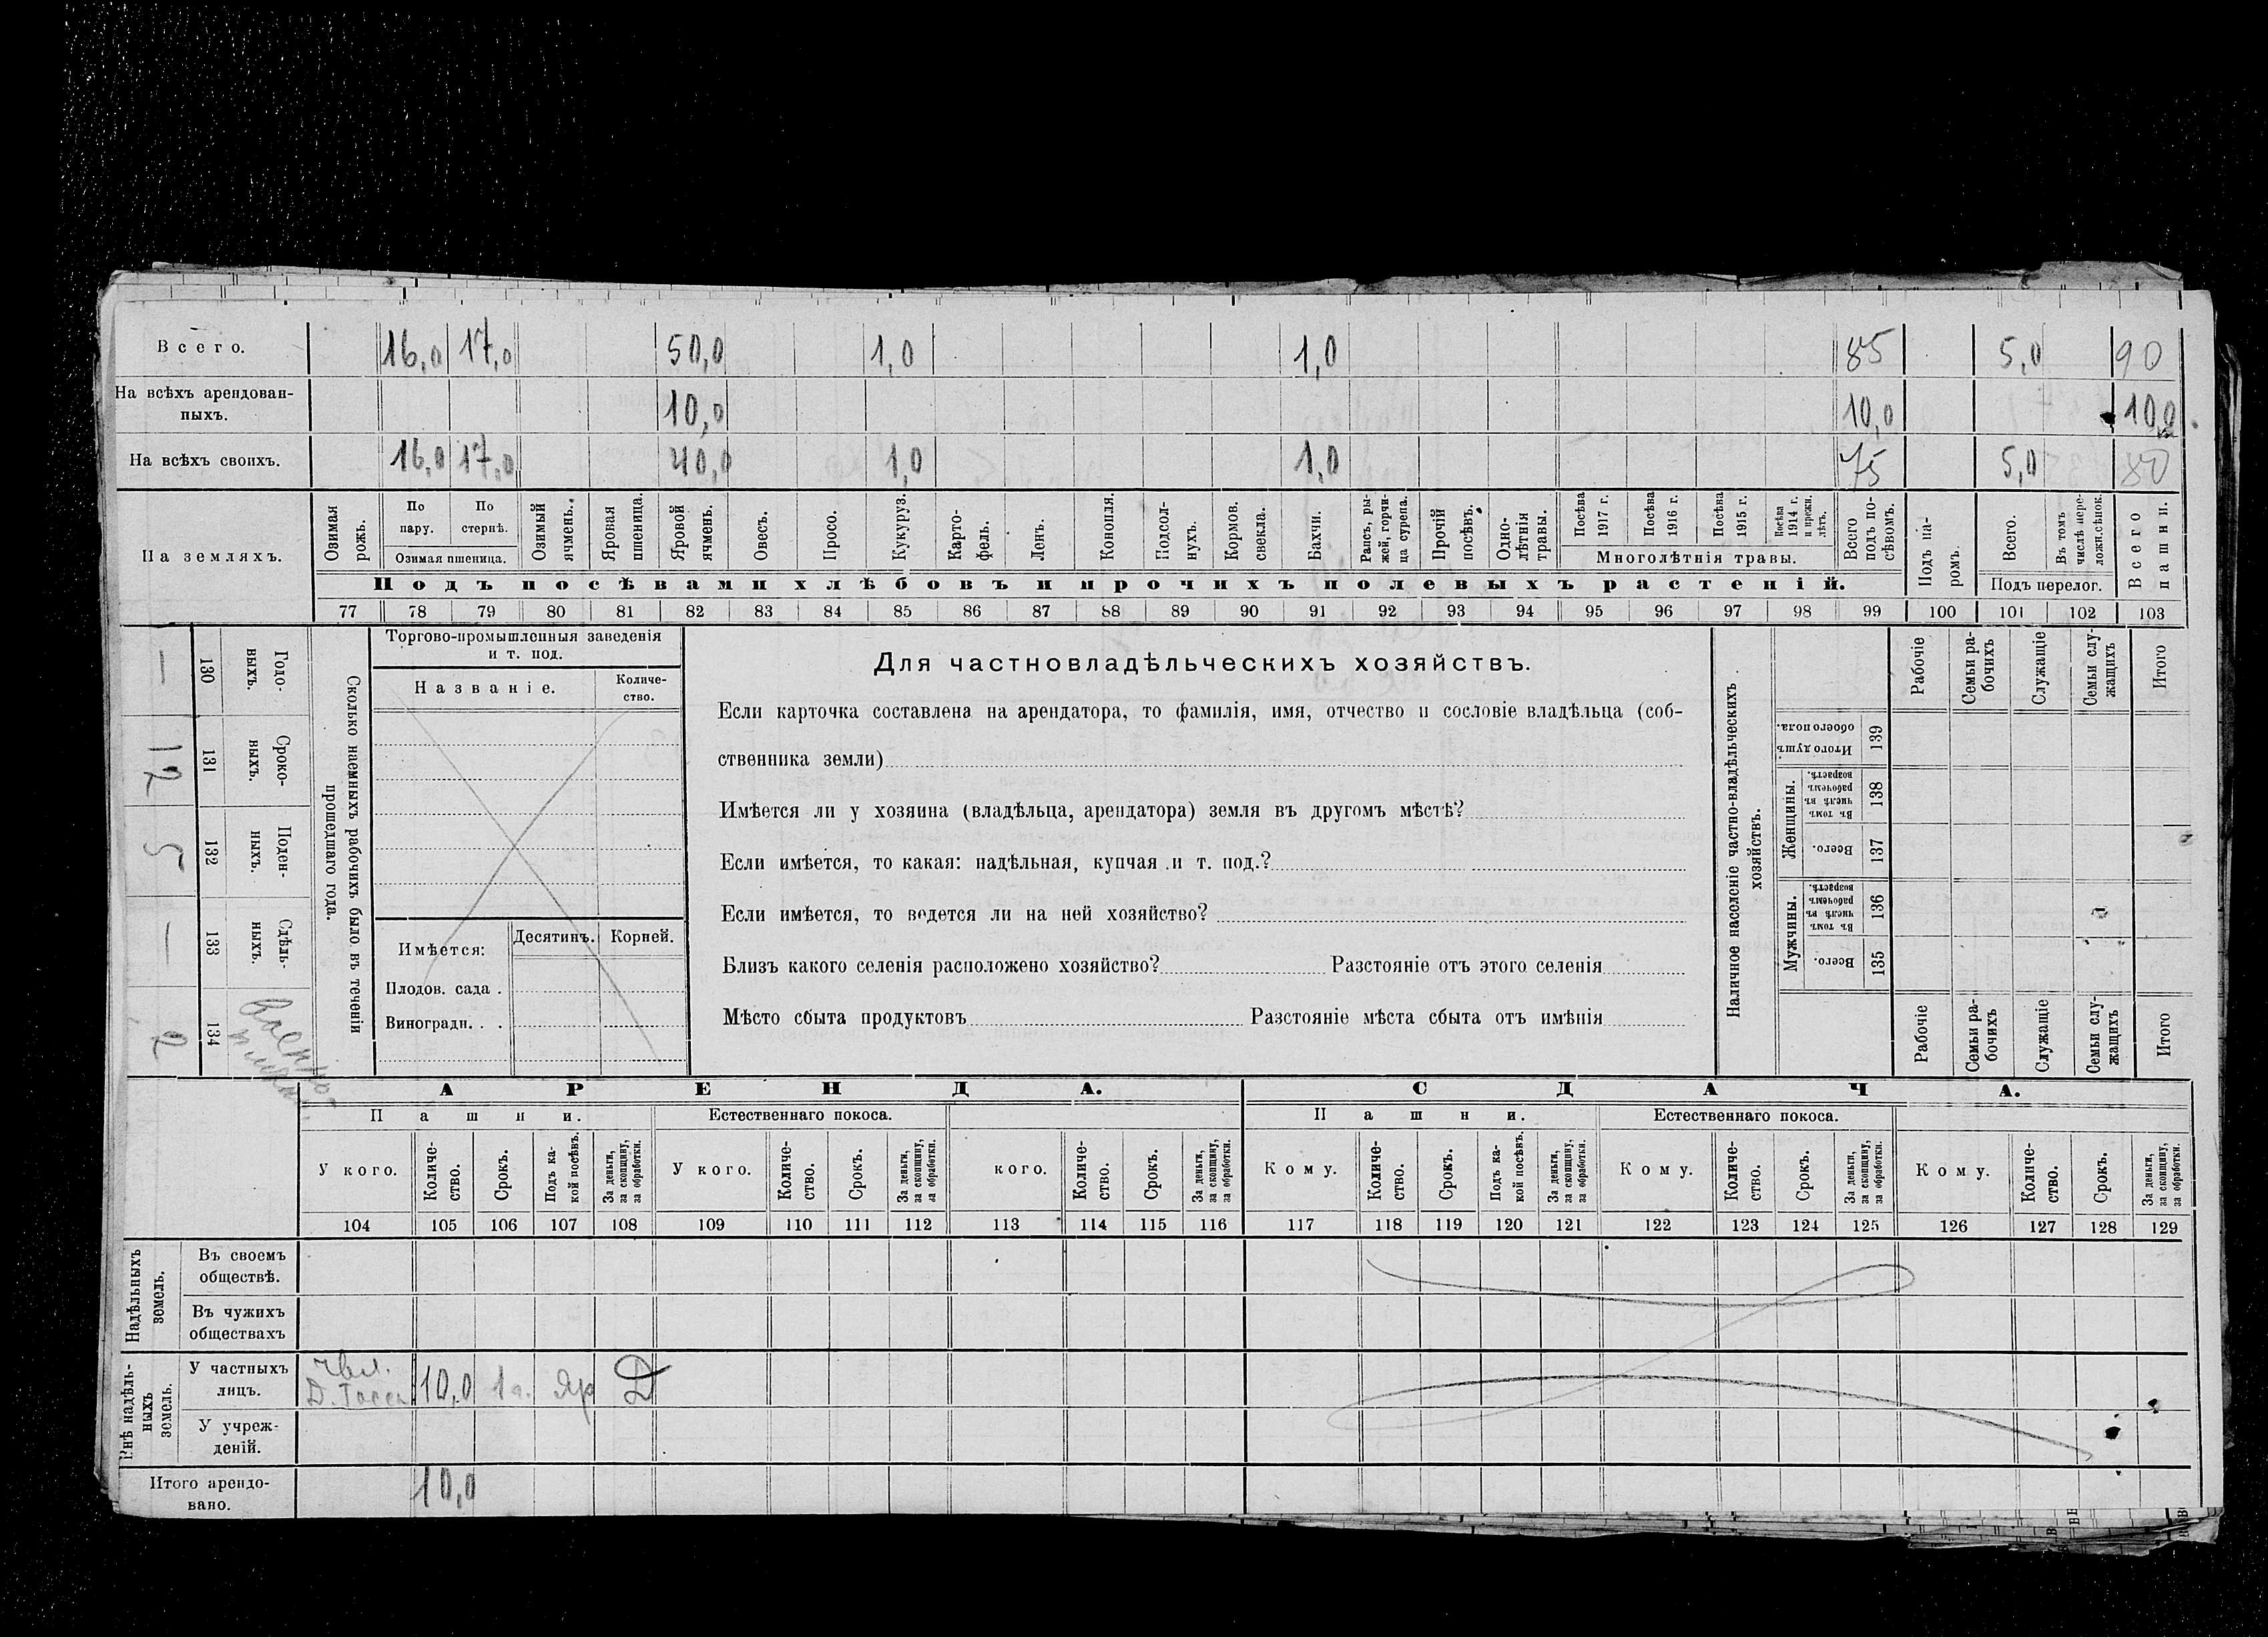 Всего. 16,0 17,0 50,0 1,0 1,0 85 5,0 90
На всѣхъ арендован-
ныхъ. 10,0 10,0 10,0
На всѣхъ своихъ. 16,0 17,0 40,0 1,0 1,0 75 5,0 80
На земляхъ.
Озимая рожь.
По пару.
По стернѣ.
Озимая пшеница.
Озимый ячмень.
Яровая пшеница.
Яровой ячмень.
Овесъ.
Просо.
Кукуруз.
Карто-
фель.
Ленъ.
Конопля.
Подсол-
нухъ.
Кормов. свекла.
Бахчи.
Рапсъ, ры-
жей, горчи-
ца сурепа.
Прочій посѣвъ.
Одно-
лѣтнія травы.
Посѣва 1917 г.
Посѣва 1916 г.
Посѣва 1915 г.
Посѣва 1914 г. и прежн. лѣтъ.
Многолѣтнія травы.
Всего подъ по-
сѣвомъ.
Подъ па-
ромъ.
Всего.
Въ томъ числѣ пере-
ложн.сѣнок.
Подъ перелог.
Всего пашни.
Подъ посѣвами хлѣбовъ и прочихъ полевыхъ растеній.
77 78 79 80 81 82 83 84 85 86 87 88 89 90 91 92 93 94 95 96 97 98 99 100 101 102 103
Сколько наемныхъ рабочихъ было въ теченіи
прошедшаго года.
Годо-
выхъ. 130 —
Сроко-
ныхъ. 131 12
Поден-
ныхъ. 132 5
Сдѣль-
ныхъ. 133 —
134 2
Торгово-промышленныя заведенія
и т. под.
Названіе.
Количе-
ство.
Имѣется:
Десятинъ.
Корней.
Плодов. сада .
Виноградн. . .
Для частновладѣльческихъ хозяйствъ.
Если карточка составлена на арендатора, то фамилія, имя, отчество и сословіе владѣльца (соб-
ственника земли)
Имѣется ли у хозяина (владѣльца, арендатора) земля въ другомъ мѣстѣ?
Если имѣется, то какая: надѣльная, купчая и т. под.?
Если имѣется, то ведется ли на ней хозяйство?
Близъ какого селенія расположено хозяйство? Разстояніе отъ этого селенія
Мѣсто сбыта продуктовъ Разстояніе мѣста сбыта отъ имѣнія
Наличное населеніе частно-владѣльческихъ
хозяйствъ.
Рабочіе
Семьи ра-
бочихъ
Служащіе
Семьи слу-
жащихъ
Итого
Итого душъ обоего пола. 139
Женщины.
Въ томъ числѣ въ рабочемъ возрастѣ. 138
Всего. 137
Мужчины.
Въ томъ числѣ въ рабочемъ возрастѣ. 136
Всего. 135
Рабочіе
Семьи ра-
бочихъ
Служащіе
Семьи слу-
жащихъ
Итого
АРЕНДА. СДАЧА.
Пашни. Естественнаго покоса. Пашни. Естественнаго покоса.
У кого.
Количе-
ство.
Срокъ.
Подъ ка-
кой посѣвъ.
За деньги,
за скопщину,
за обработки.
У кого.
Количе-
ство.
Срокъ.
За деньги,
за скопщину,
за обработки.
кого.
Количе-
ство.
Срокъ.
За деньги,
за скопщину,
за обработки.
Кому.
Количе-
ство.
Срокъ.
Подъ ка-
кой посѣвъ.
За деньги,
за скопщину,
за обработки.
Кому.
Количе-
ство.
Срокъ.
За деньги,
за скопщину,
за обработки.
Кому.
Количе-
ство.
Срокъ.
За деньги,
за скопщину,
за обработки.
104 105 106 107 108 109 110 111 112 113 114 115 116 117 118 119 120 121 122 123 124 125 126 127 128 129
Надѣльныхъ
земель.
Въ своемъ
обществѣ.
Въ чужихъ
обществахъ
Внѣ надѣль-
ныхъ
земель.
У частныхъ
лицъ. 10,0 1 г. Яр Д
У учреж-
деній.
Итого арендо-
вано. 10,0